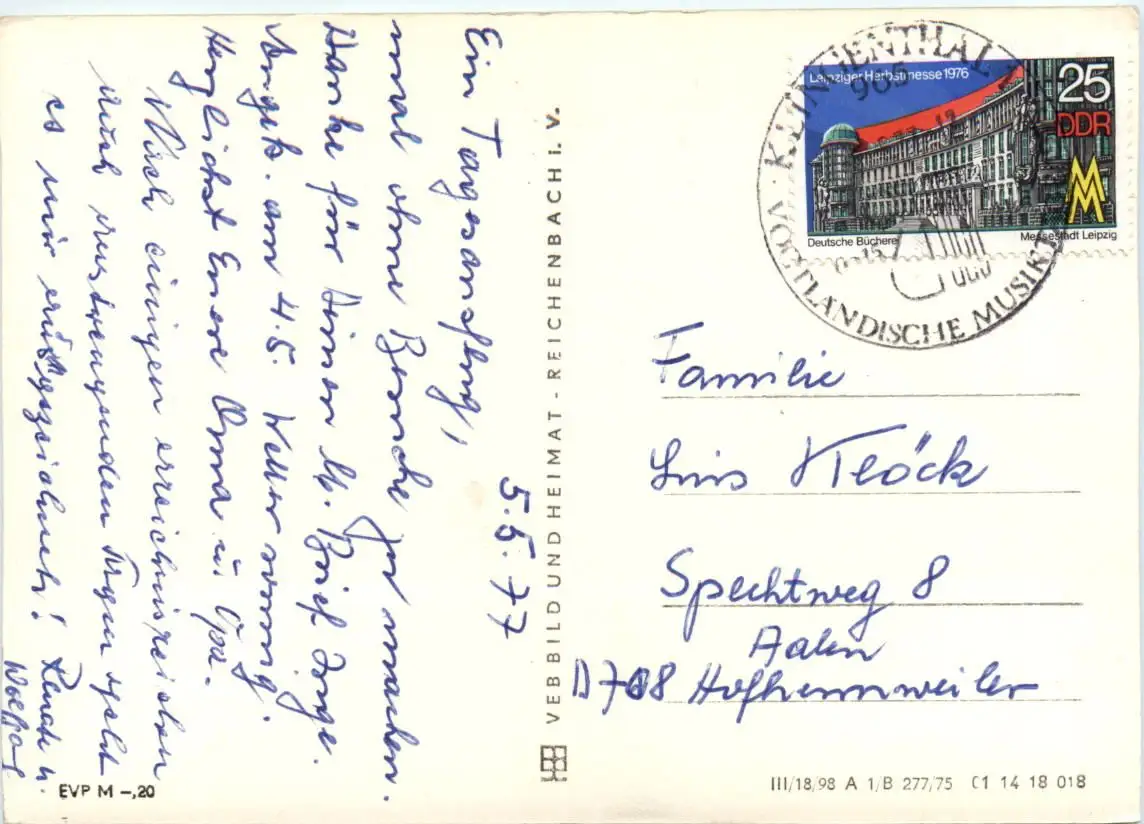 5.5.77
Ein Tagesausflug,
mal ohne Bursche, zu machen.
Danke für Deinen lb. Brief
Angek. am 4.5. Wetter sonnig.
Herzlichst Euere Oma u. Opa.
Nach einigen ereignisreichen
und anstrengenden Tagen geht
es mir ausgezeichnet! Renate u.
VEB BILD UND HEIMAT - REICHENBACH i. V.
EVP M -,20
Leipziger Herbstmesse 1976
25
DDR
MM
Deutsche Bücherei
Messestadt Leipzig
KLINGENTHAL
965
VOGTLÄNDISCHE MUSIK
Familie
Klöck
Spechtweg 8
Aalen
Hofherrnweiler
III/18/98 A 1/B 277/75 01 14 18 018